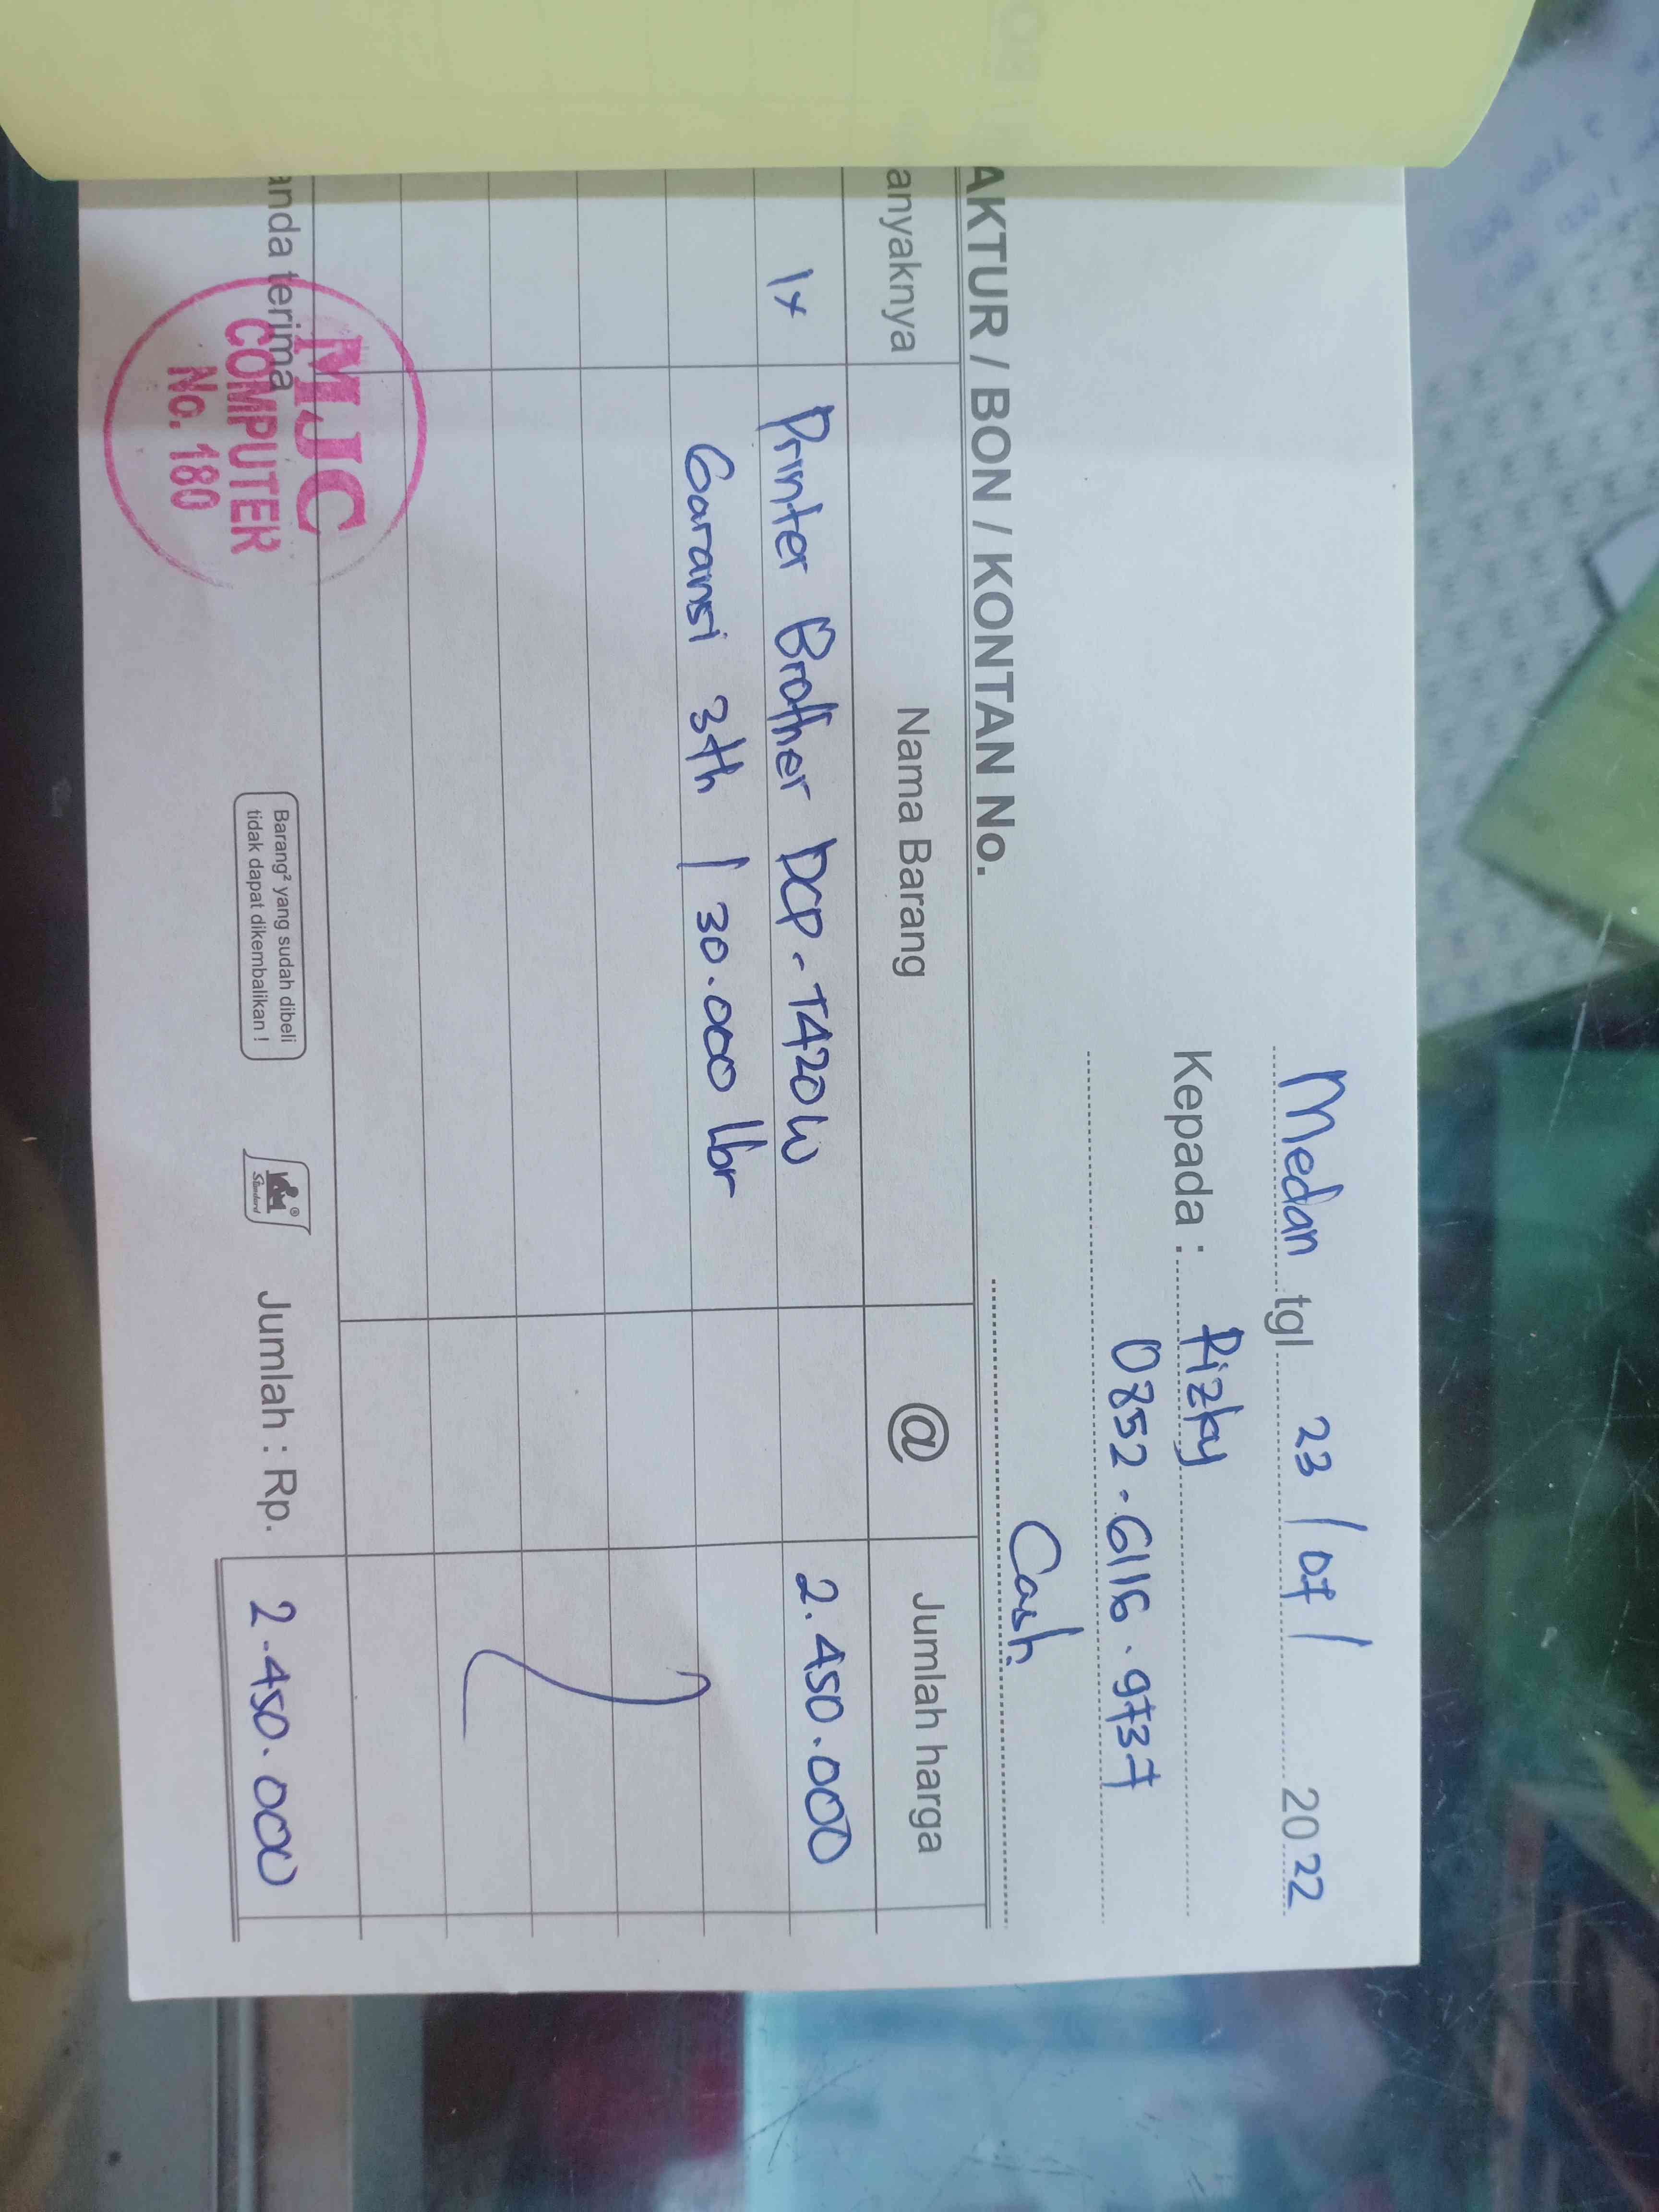 Medan tgl 23 / 07 / 2022
Kepada : Rizky
0852 - 6116 . 9737
Cash.
AKTUR / BON / KONTAN No.
anyaknya Nama Barang @ Jumlah harga
1x Printer Brother DCP - T420W 2.450.000
Garansi 3th | 30.000 lbr
anda terima Jumlah : Rp. 2.450.000
MJC
COMPUTER
No. 180
Barang² yang sudah dibeli
tidak dapat dikembalikan !
Standard